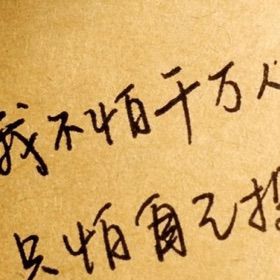 我不怕千万人
只怕自己投